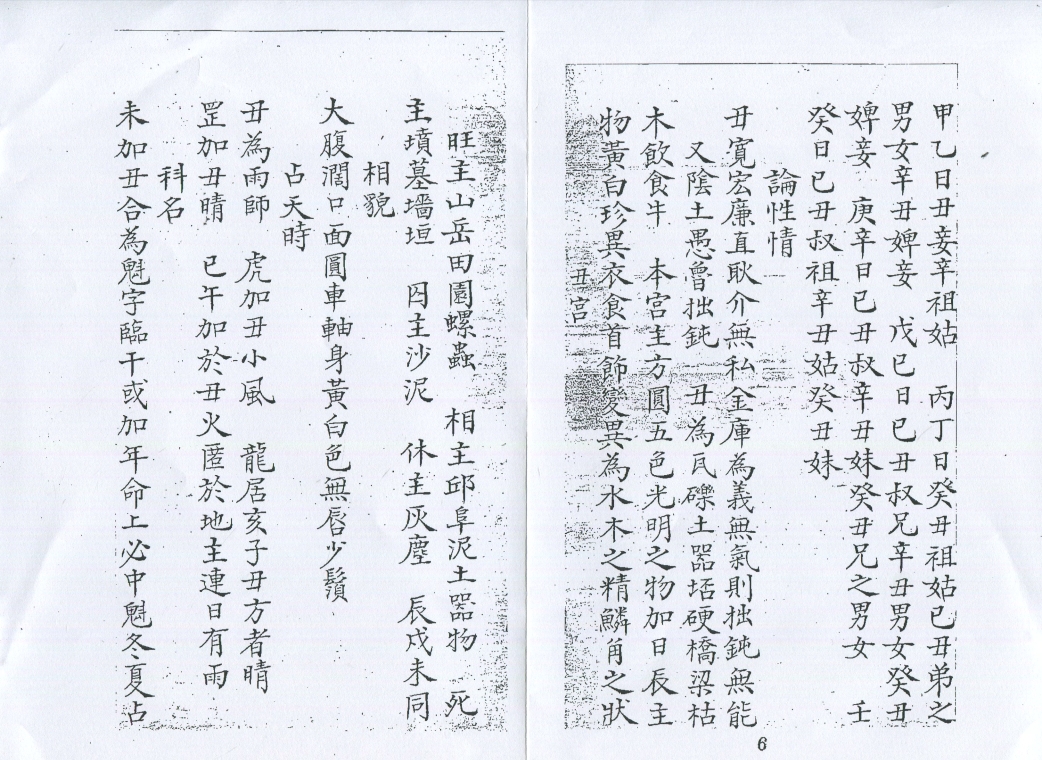 甲乙日丑妾辛祖姑　丙丁日癸丑祖姑己丑弟之
男女辛丑婢妾　戊己日己丑叔兄辛丑男女癸丑
婢妾　庚辛日己丑叔辛丑妹癸丑兄之男女　壬
癸日己丑叔祖辛丑姑癸丑妹
論性情
丑寬宏廉直耿介無私金庫為義無氣則拙鈍無能
又陰土愚魯拙鈍　丑為瓦礫土器垢硬橋梁枯
木飲食牛　本宮主方圓五色光明之物加日辰主
物黃白珍異衣食首飾變異為水木之精鱗角之狀
丑宮
6
旺主山岳田園螺蟲　相主邱阜泥土器物　死
主墳墓墻垣　囚主沙泥　休主灰塵　辰戍未同
相貌
大腹濶口面圓車軸身黃白色無唇少鬚
占天時
丑為雨師　虎加丑小風　龍居亥子丑方者晴
罡加丑晴　巳午加於丑火匿於地主連日有雨
科名
未加丑合為魁字臨干或加年命上必中魁冬夏占